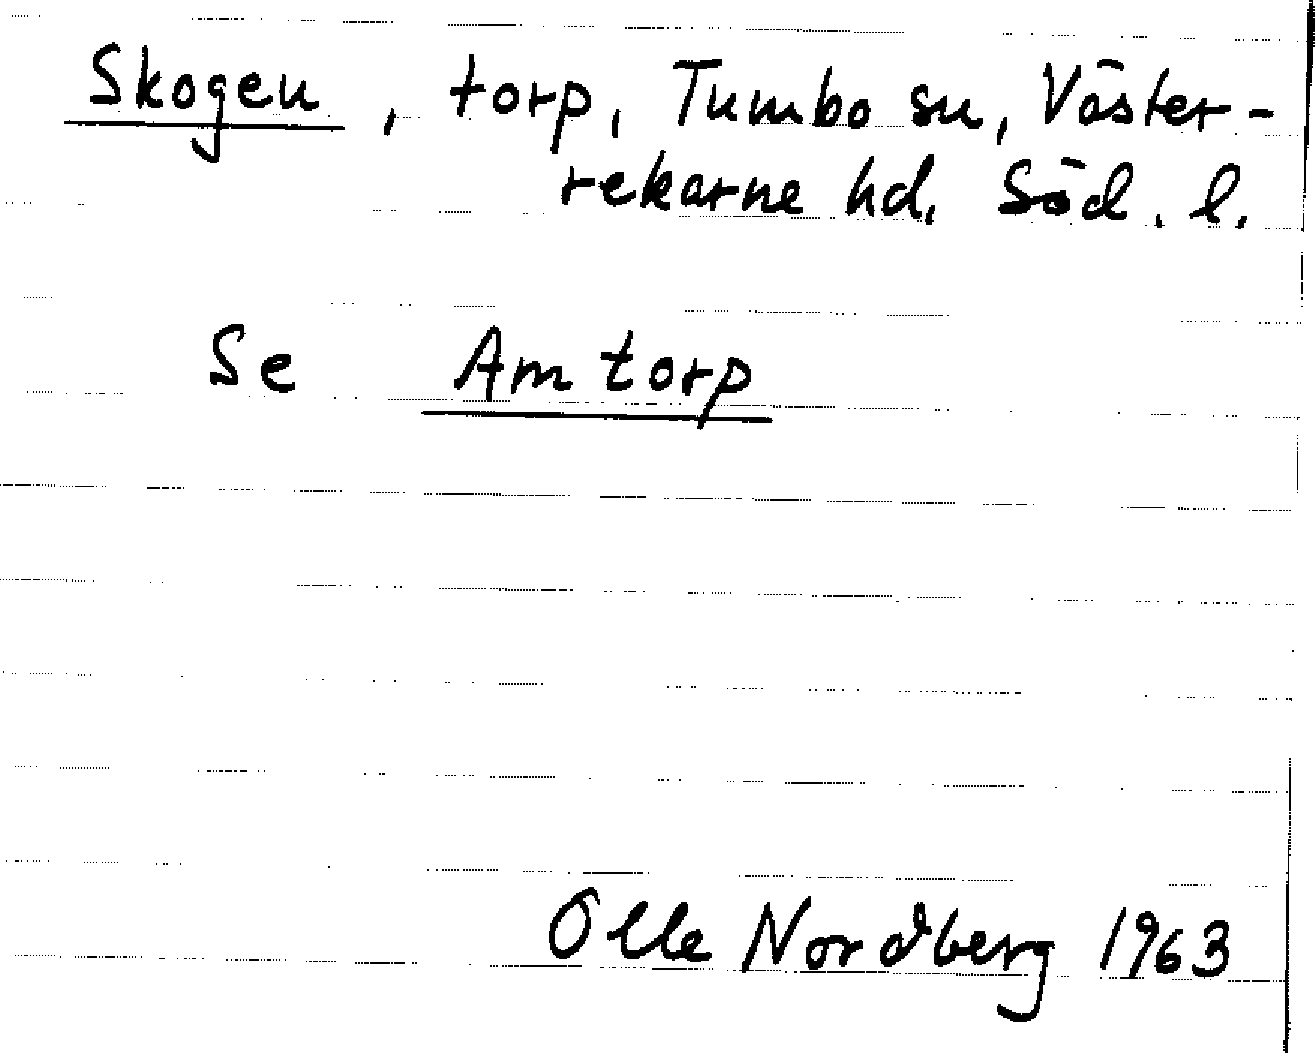 Skogen, torp, Tumbo sn, Väster-
rekarne hd, Söd. l.
Se Amtorp
Olle Nordberg 1963